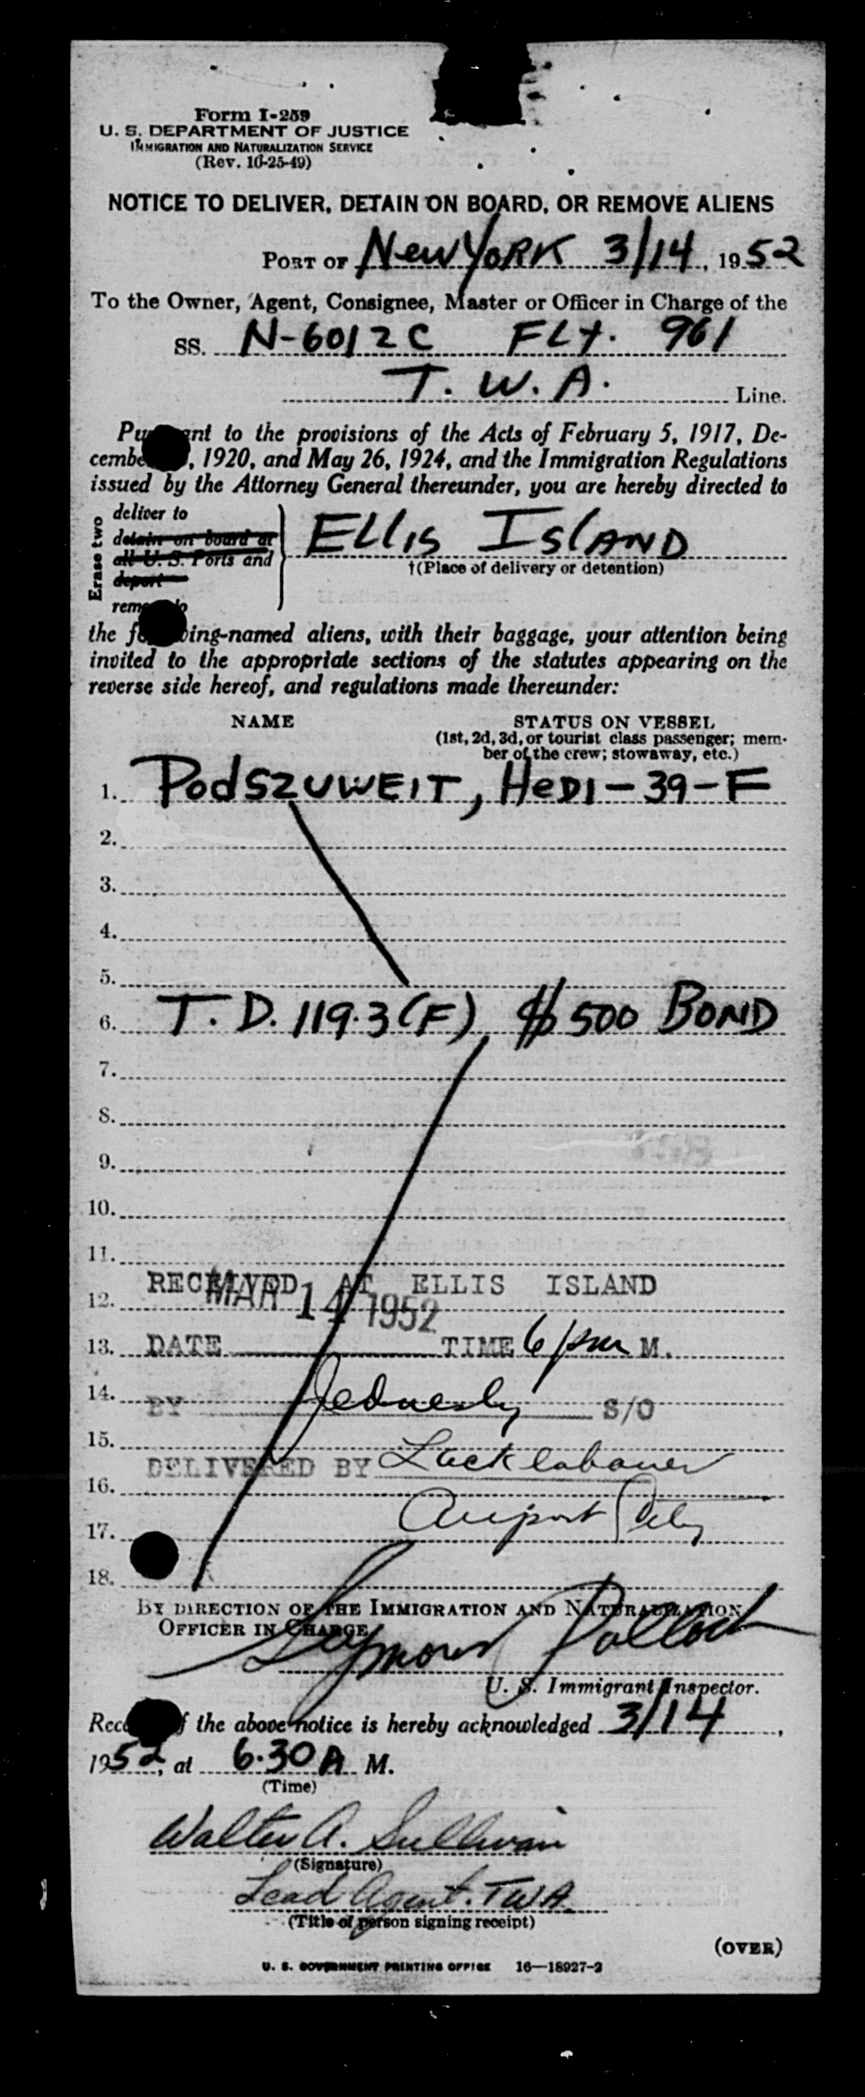 Form I-259
U. S. DEPARTMENT OF JUSTICE
IMMIGRATION AND NATURALIZATION SERVICE
(Rev. 10-25-49)
NOTICE TO DELIVER, DETAIN ON BOARD, OR REMOVE ALIENS
PORT OF New York 3/14, 1952
To the Owner, Agent, Consignee, Master or Officer in Charge of the
SS. N-6012C FLt. 961
T. W. A. Line.
Pu ant to the provisions of the Acts of February 5, 1917, De-
cembe , 1920, and May 26, 1924, and the Immigration Regulations
issued by the Attorney General thereunder, you are hereby directed to
Erase two
deliver to
detain on board at
all U. S. Ports and
deport
rem o
Ellis Island
†(Place of delivery or detention)
the f ing-named aliens, with their baggage, your attention being
invited to the appropriate sections of the statutes appearing on the
reverse side hereof, and regulations made thereunder:
NAME STATUS ON VESSEL
(1st, 2d, 3d, or tourist class passenger; mem-
ber of the crew; stowaway, etc.)
1. PodSZUWEIT, HeDI-39-F
2.
3.
4.
5.
6. T. D. 119.3(F) $500 BOND
7.
8.
9.
10.
11.
RECEIVED AT ELLIS ISLAND
12. MAR 14 1952
13. DATE TIME 6 pm M.
14. BY S/O
15. DELIVERED BY
16.
17.
18.
BY DIRECTION OF THE IMMIGRATION AND NATURALIZATION
OFFICER IN CHARGE
Seymour Pollock
U. S. Immigrant Inspector.
Rec f the above notice is hereby acknowledged 3/14,
1952, at 6.30 A M.
(Time)
Walter A. Sullivan
(Signature)
Lead Agent. TWA.
(Title of person signing receipt)
(OVER)
U. S. GOVERNMENT PRINTING OFFICE 16—18927-2